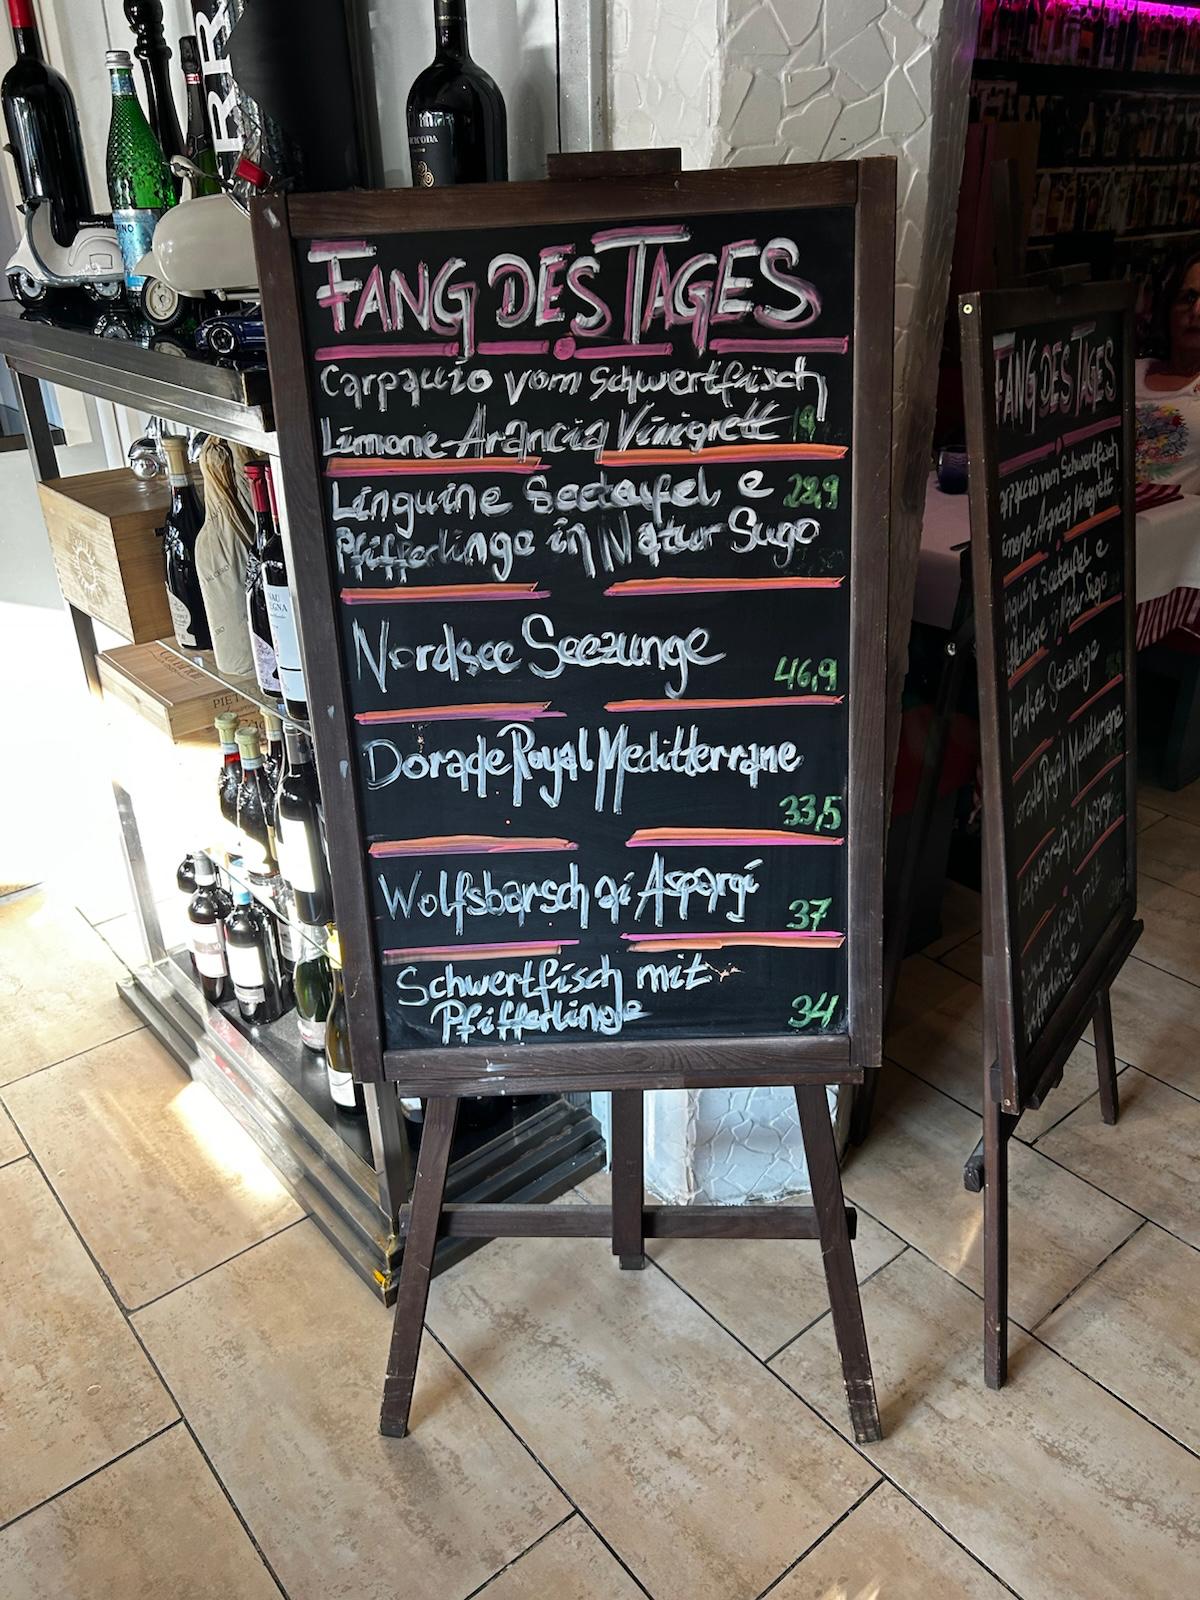 FANG DES TAGES
Carpaccio vom Schwertfisch
Limone-Arancia Vinigrett 19
Linguine Seeteufel e 28,9
Pfifferlinge in Natur Sugo
Nordsee Seezunge
46,9
Dorade Royal Meditterrane
33,5
Wolfsbarsch ai Aspargi
37
Schwertfisch mit
Pfifferlinge 34
FANG DES TAGES
arpaccio vom Schwertfisch
imone-Arancia Vinigrett
nguine Seeteufel e
fifferlinge in Natur Sugo
Nordsee Seezunge
orade Royal Mediterrane
Wolfsbarsch ai Aspargi
Schwertfisch mit
Pfifferlinge